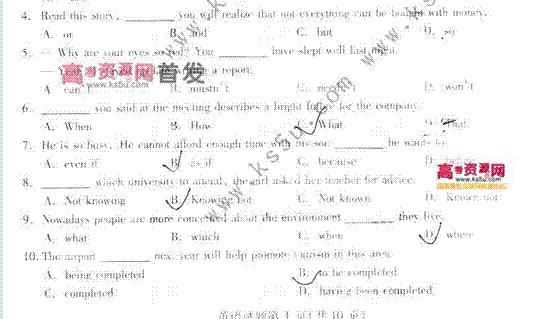 4. Read this story, ________ you will realize that not everything can be bought with money.
A. or B. and C. but D. so
5. — Why are your eyes so red? You ________ have slept well last night.
— a report.
A. can't B. mustn't C. needn't D. won't
高考资源网首发
www.ks5u.com
6. ________ you said at the meeting describes a bright future for the company.
A. When B. How C. What D. That
7. He is so busy. He cannot afford enough time with his son ________ he wants to.
A. even if B. as if C. because D.
高考资源网
www.ks5u.com
8. ________ which university to attend, the girl asked her teacher for advice.
A. Not knowing B. Knowing not C. Not known D. Known not
9. Nowadays people are more concerned about the environment ________ they live.
A. what B. which C. when D. where
10. The airport ________ next year will help promote tourism in this area.
A. being completed B. to be completed
C. completed D. having been completed